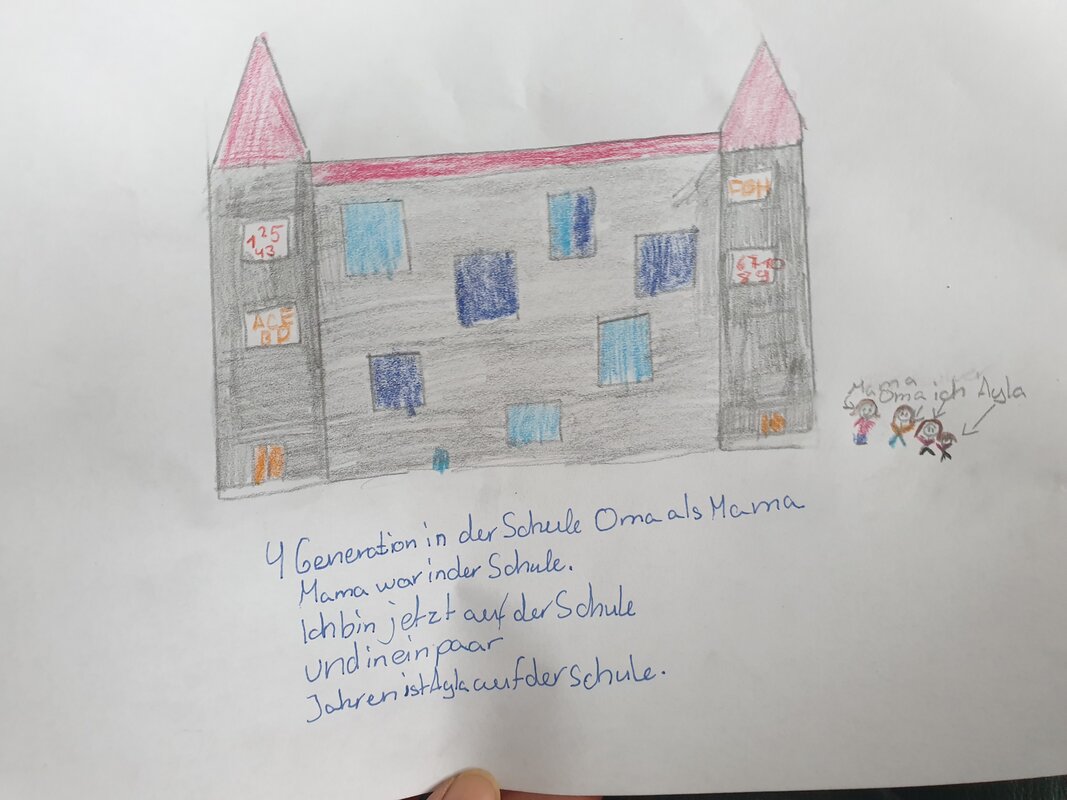 CGH
1 2 5
4 3
6 7 10
8 9
A C E
B D
Mama
Oma ich Ayla
4 Generation in der Schule Oma als Mama
Mama war in der Schule.
Ich bin jetzt auf der Schule
und in ein paar
Jahren ist Ayla auf der Schule.